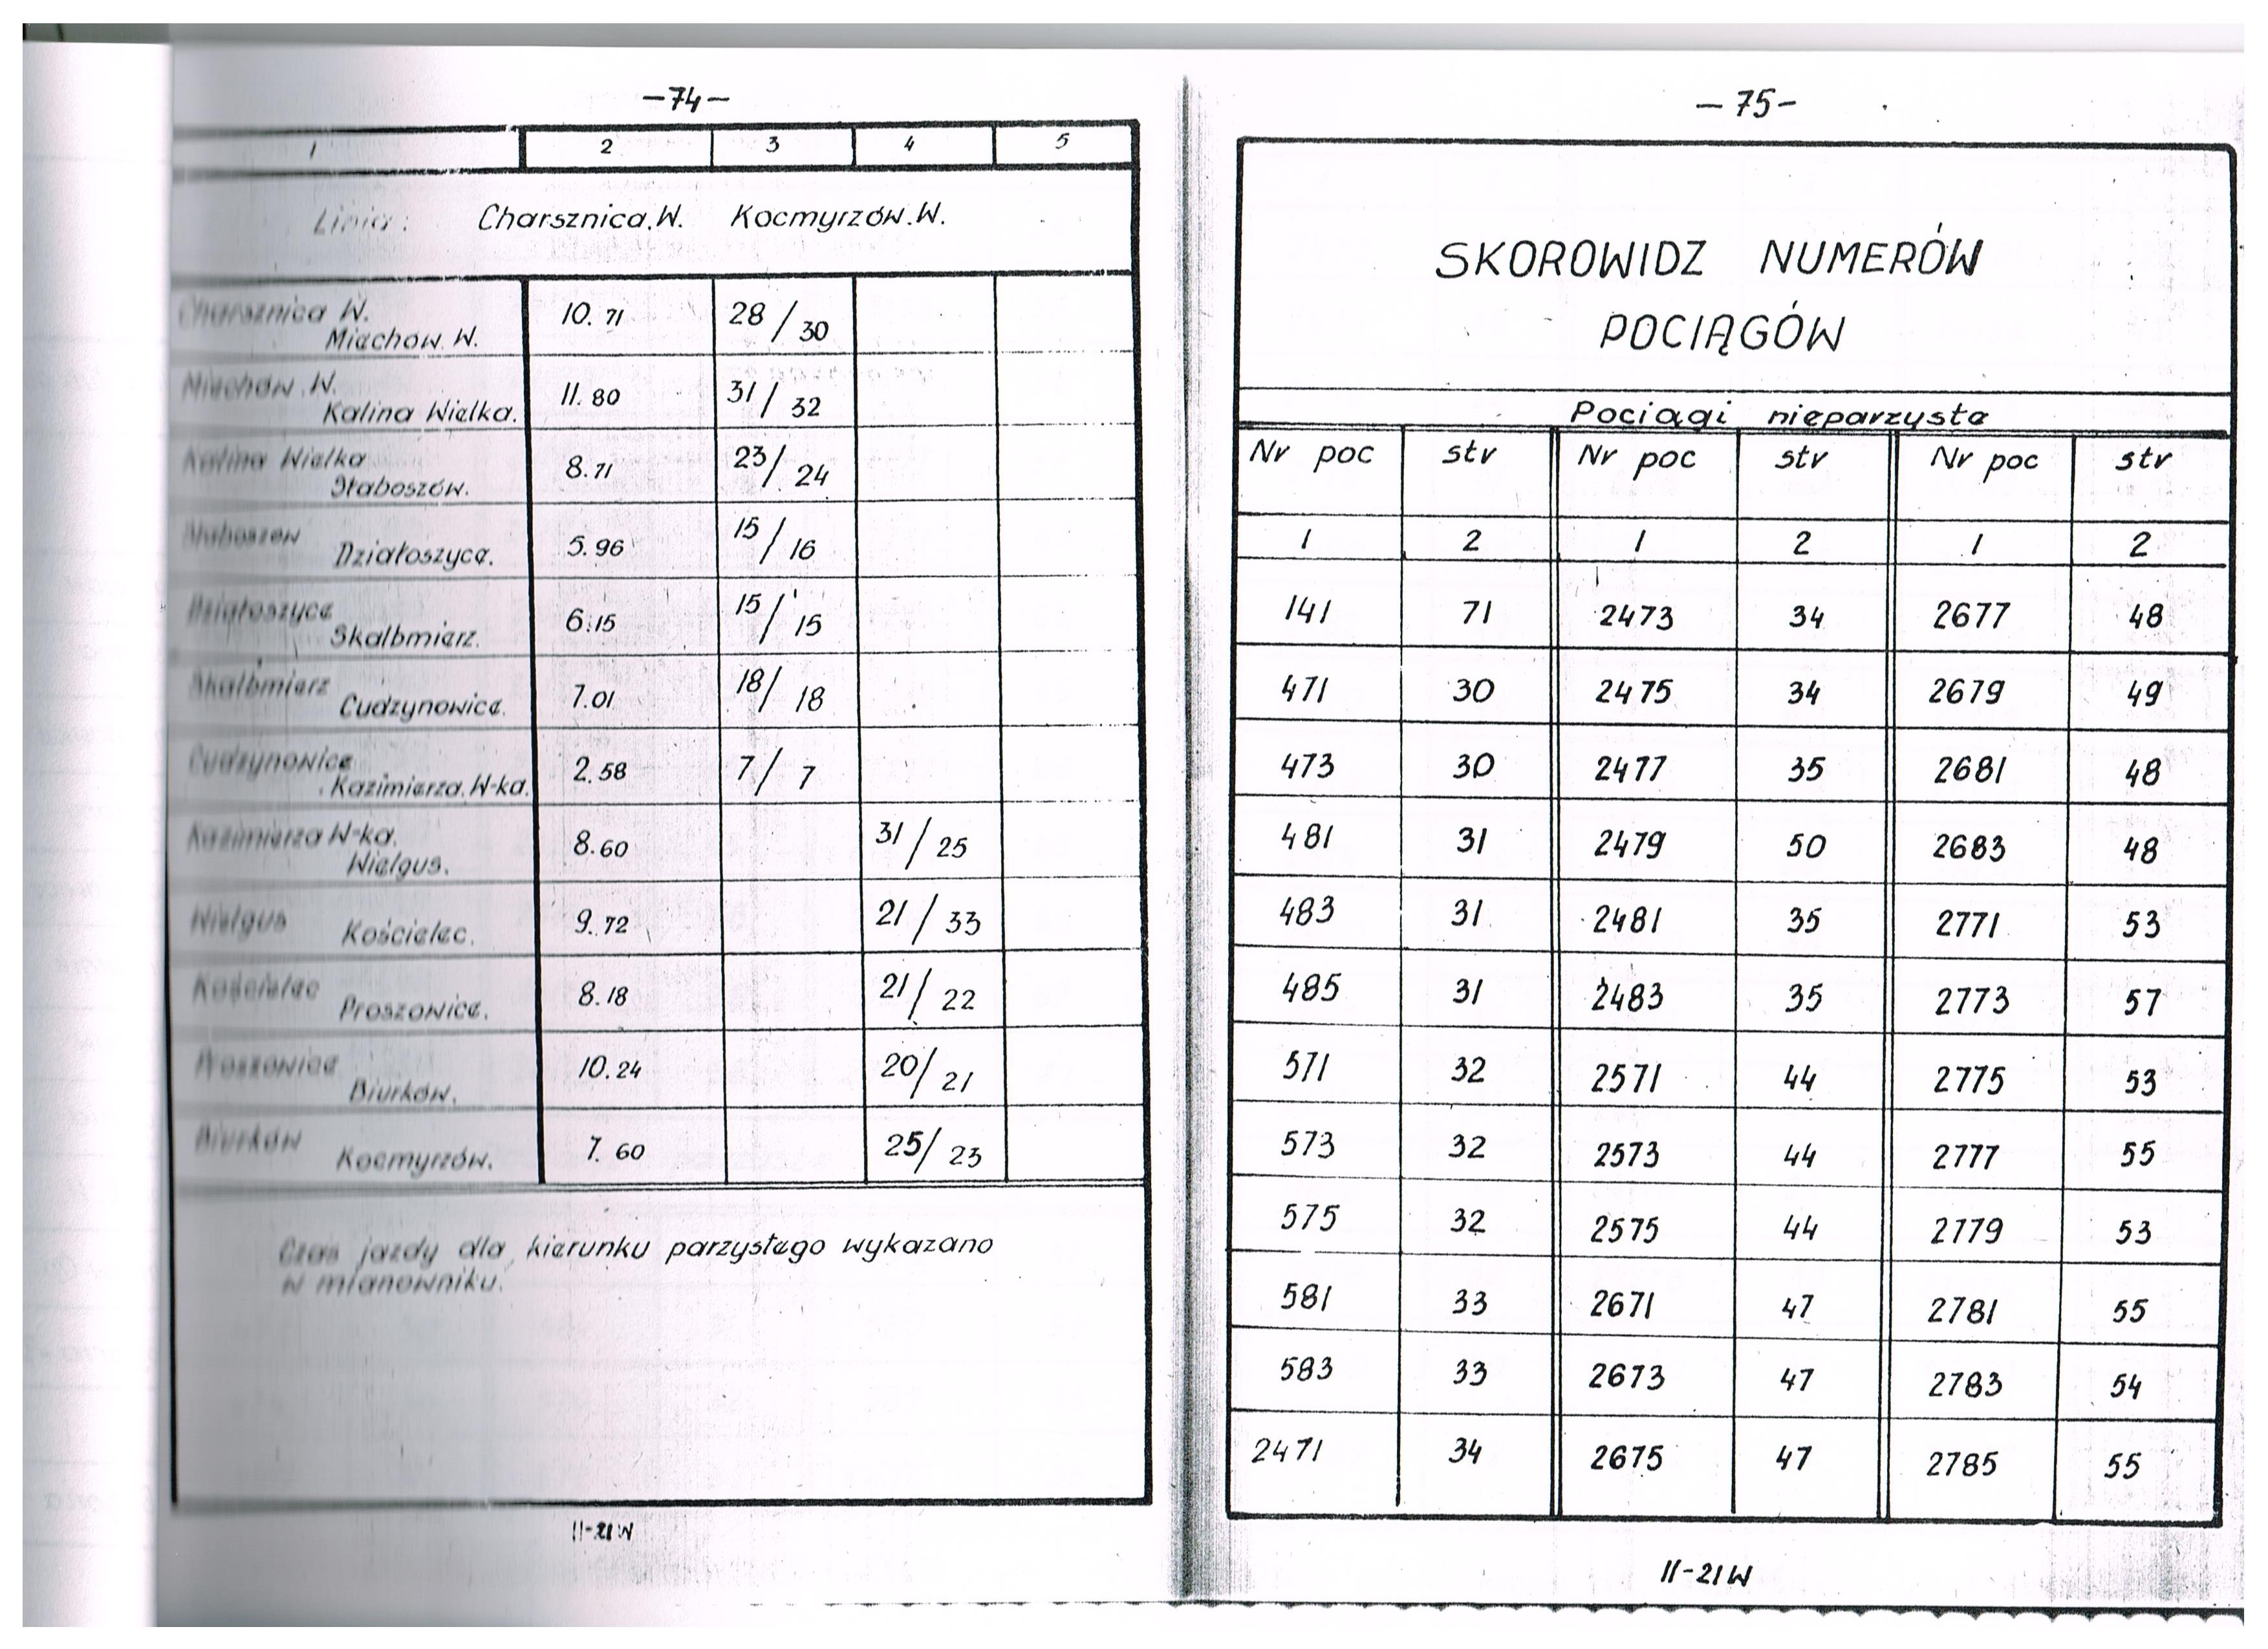 -74-
1 2 3 4 5
Linia: Charsznica.W. Kocmyrzów.W.
Charsznica W. 10.71 28/30
Miechów. W.
Miechów.W. 11.80 31/32
Kalina Wielka.
Kalina Wielka 8.71 23/24
Słaboszów.
Słaboszów 5.96 15/16
Działoszyce.
Działoszyce 6.15 15/15
Skalbmierz.
Skalbmierz 7.01 18/18
Cudzynowice.
Cudzynowice 2.58 7/7
Kazimierza.W-ka.
Kazimierza W-ka. 8.60 31/25
Wielgus.
Wielgus 9.72 21/33
Kościelec.
Kościelec 8.18 21/22
Proszowice.
Proszowice 10.24 20/21
Biurków.
Biurków 7.60 25/23
Kocmyrzów.
Czas jazdy dla kierunku parzystego wykazano
w mianowniku.
II-21W
-75-
SKOROWIDZ NUMERÓW
POCIĄGÓW
Pociągi nieparzyste
Nr poc str Nr poc str Nr poc str
1 2 1 2 1 2
141 71 2473 34 2677 48
471 30 2475 34 2679 49
473 30 2477 35 2681 48
481 31 2479 50 2683 48
483 31 2481 35 2771 53
485 31 2483 35 2773 57
571 32 2571 44 2775 53
573 32 2573 44 2777 55
575 32 2575 44 2779 53
581 33 2671 47 2781 55
583 33 2673 47 2783 54
2471 34 2675 47 2785 55
II-21W